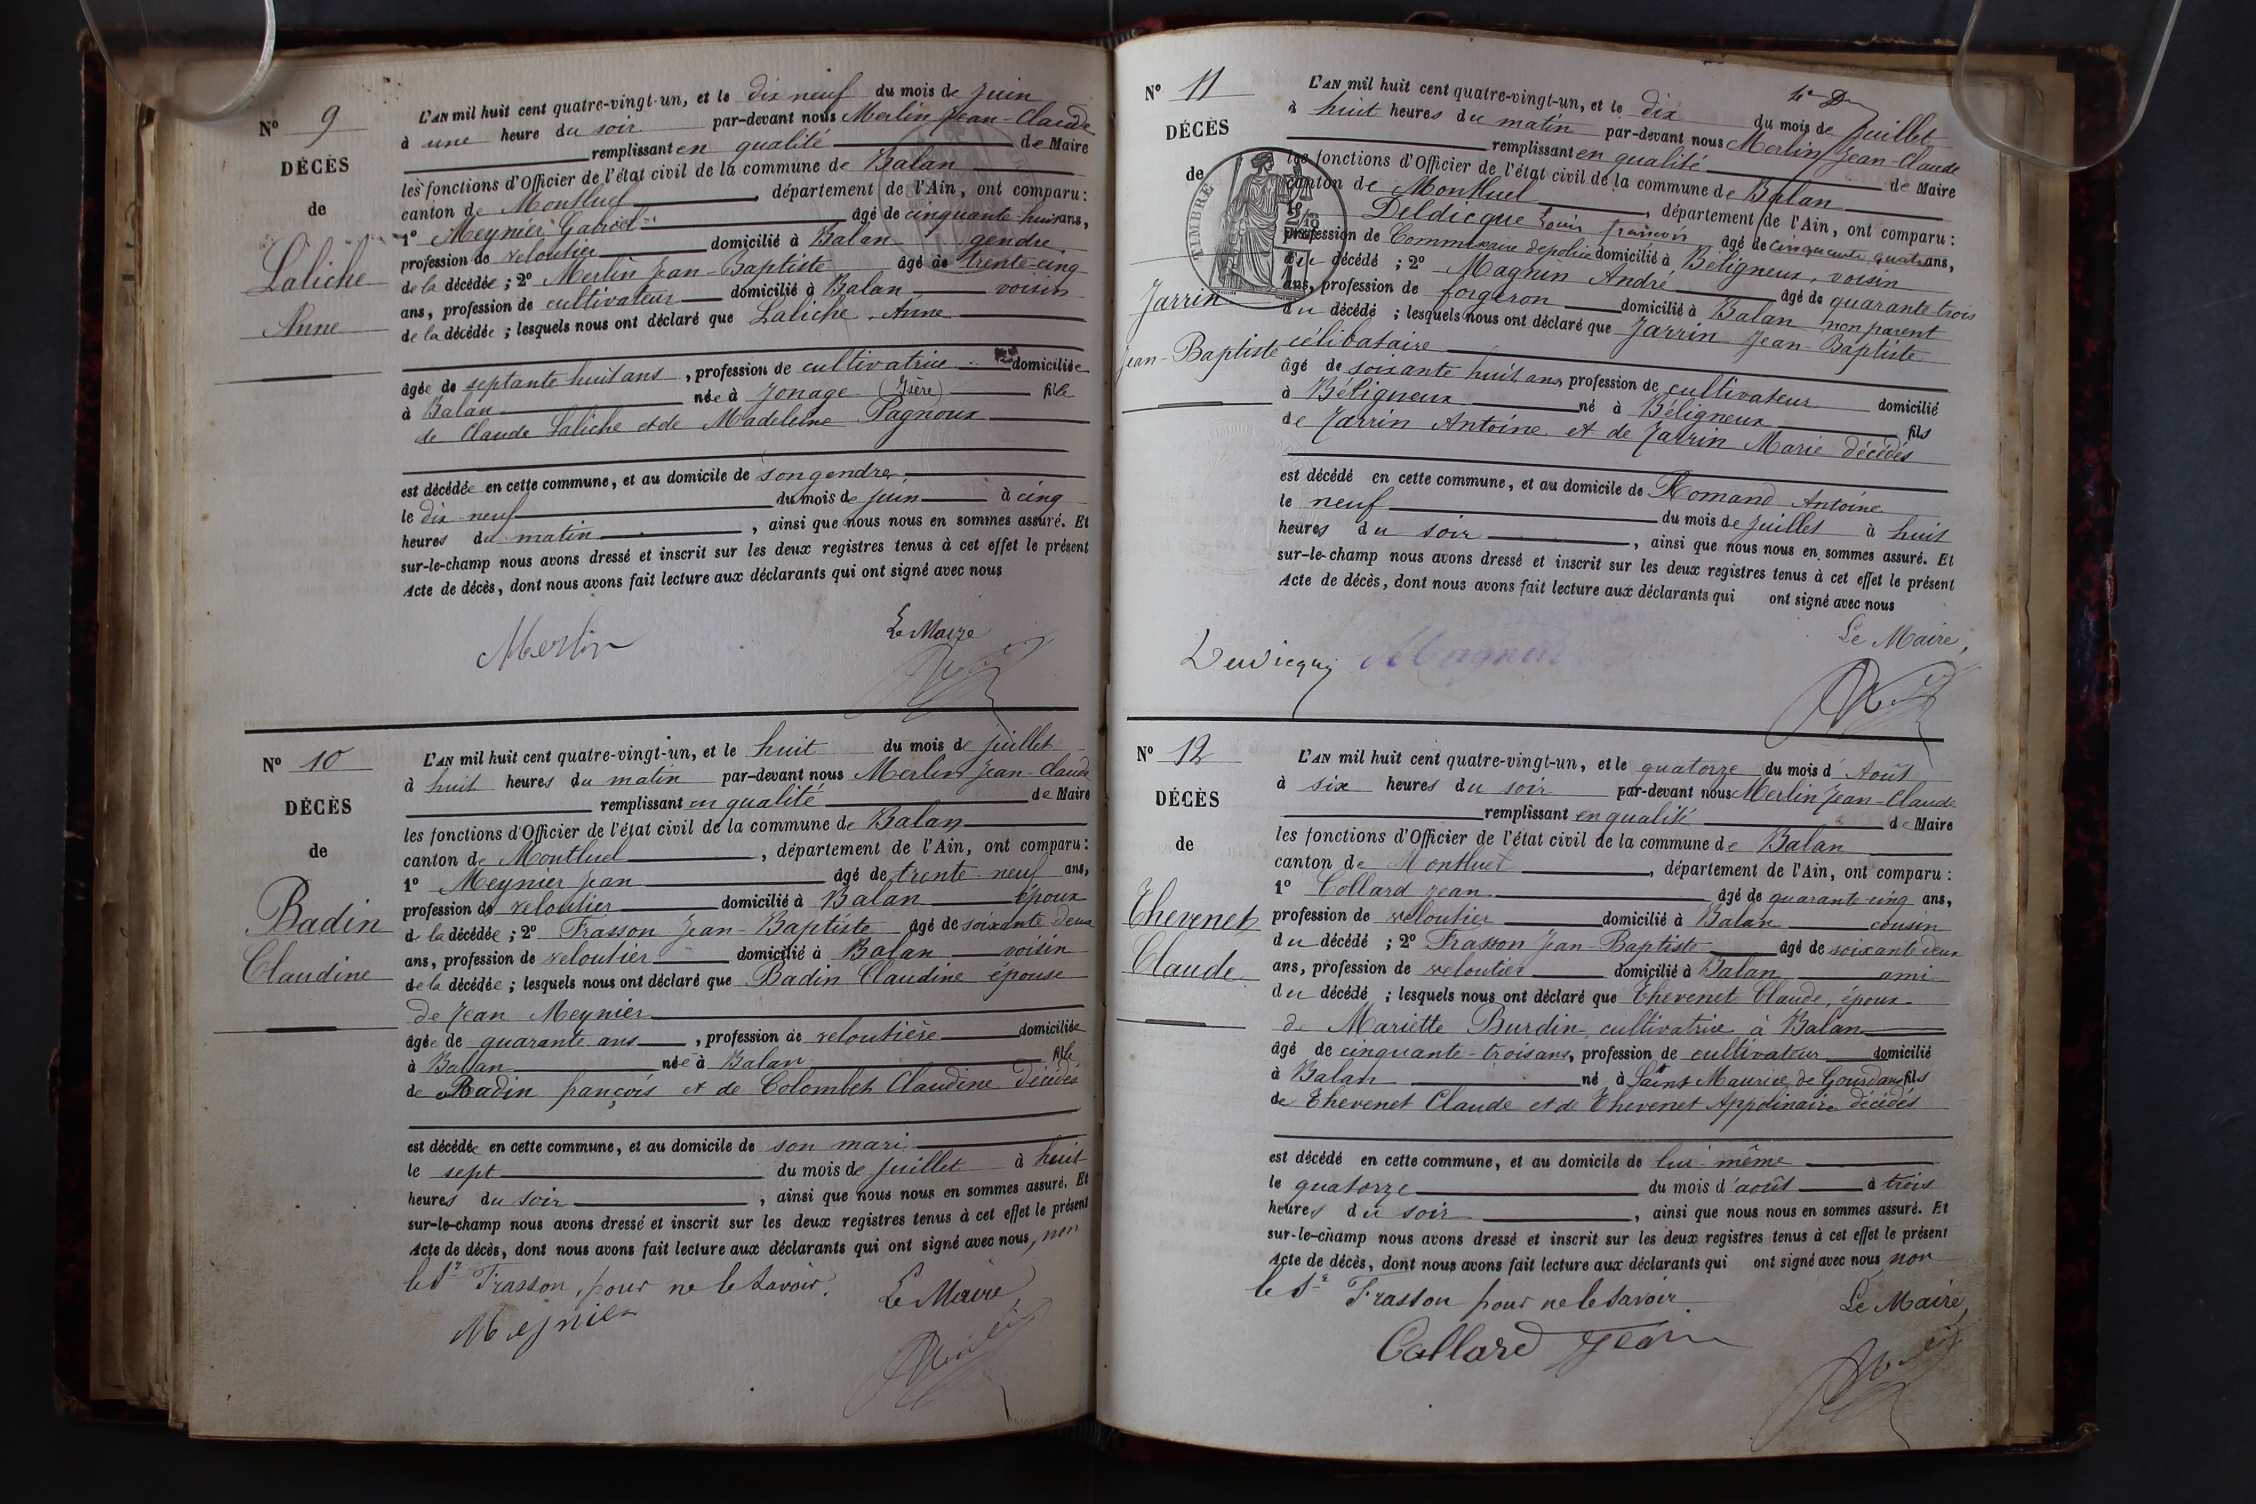 N° 9
DÉCÈS
de
Laliche
Anne
L'AN mil huit cent quatre-vingt-un, et le dix neuf du mois de juin
à une heure du soir par-devant nous Merlin Jean-Claude
remplissant en qualité de Maire
les fonctions d'Officier de l'état civil de la commune de Balan
canton de Montluel, département de l'Ain, ont comparu :
1° Meynier Gabriel âgé de cinquante-huit ans,
profession de veloutier domicilié à Balan gendre
de la décédée ; 2° Merlin Jean-Baptiste âgé de trente-cinq
ans, profession de cultivateur domicilié à Balan voisin
de la décédée ; lesquels nous ont déclaré que Laliche Anne
âgée de septante huit ans, profession de cultivatrice domiciliée
à Balan née à Jonage (Isère) fille
de Claude Laliche et de Madeleine Pagnoux
est décédée en cette commune, et au domicile de son gendre
le dix-neuf du mois de juin à cinq
heures du matin, ainsi que nous nous en sommes assuré. Et
sur-le-champ nous avons dressé et inscrit sur les deux registres tenus à cet effet le présent
Acte de décès, dont nous avons fait lecture aux déclarants qui ont signé avec nous
Le Maire
Merlin
N° 10
DÉCÈS
de
Badin
Claudine
L'AN mil huit cent quatre-vingt-un, et le huit du mois de juillet
à huit heures du matin par-devant nous Merlin Jean-Claude
remplissant en qualité de Maire
les fonctions d'Officier de l'état civil de la commune de Balan
canton de Montluel, département de l'Ain, ont comparu :
1° Meynier Jean âgé de trente-neuf ans,
profession de veloutier domicilié à Balan époux
de la décédée ; 2° Frasson Jean-Baptiste âgé de soixante deux
ans, profession de veloutier domicilié à Balan voisin
de la décédée ; lesquels nous ont déclaré que Badin Claudine épouse
de Jean Meynier
âgée de quarante ans, profession de veloutière domiciliée
à Balan née à Balan fille
de Badin françois et de Colombet Claudine décédés
est décédée en cette commune, et au domicile de son mari
le sept du mois de juillet à huit
heures du soir, ainsi que nous nous en sommes assuré. Et
sur-le-champ nous avons dressé et inscrit sur les deux registres tenus à cet effet le présent
Acte de décès, dont nous avons fait lecture aux déclarants qui ont signé avec nous, non
le Sr Frasson, pour ne le savoir.
Le Maire
Meynier
N° 11
DÉCÈS
de
Jarrin
Jean-Baptiste
TIMBRE
L'AN mil huit cent quatre-vingt-un, et le dix du mois de juillet
à huit heures du matin par-devant nous Merlin Jean-Claude
remplissant en qualité de Maire
les fonctions d'Officier de l'état civil de la commune de Balan
canton de Montluel, département de l'Ain, ont comparu :
1° Deldicque Louis françois âgé de cinquante quatre ans,
profession de Commissaire de police domicilié à Béligneux, voisin
du décédé ; 2° Magnin André âgé de quarante trois
ans, profession de forgeron domicilié à Balan non parent
du décédé ; lesquels nous ont déclaré que Jarrin Jean-Baptiste
célibataire
âgé de soixante huit ans, profession de cultivateur domicilié
à Béligneux né à Béligneux fils
de Jarrin Antoine et de Jarrin Marie décédés
est décédé en cette commune, et au domicile de Romand Antoine
le neuf du mois de juillet à huit
heures du soir, ainsi que nous nous en sommes assuré. Et
sur-le-champ nous avons dressé et inscrit sur les deux registres tenus à cet effet le présent
Acte de décès, dont nous avons fait lecture aux déclarants qui ont signé avec nous
Le Maire,
Magnin
N° 12
DÉCÈS
de
Thevenet
Claude
L'AN mil huit cent quatre-vingt-un, et le quatorze du mois d'Août
à six heures du soir par-devant nous Merlin Jean-Claude
remplissant en qualité de Maire
les fonctions d'Officier de l'état civil de la commune de Balan
canton de Montluel, département de l'Ain, ont comparu :
1° Collard Jean âgé de quarante cinq ans,
profession de veloutier domicilié à Balan cousin
du décédé ; 2° Frasson Jean-Baptiste âgé de soixante deux
ans, profession de veloutier domicilié à Balan ami
du décédé ; lesquels nous ont déclaré que Thevenet Claude, époux
de Mariette Burdin, cultivatrice à Balan
âgé de cinquante-trois ans, profession de cultivateur domicilié
à Balan né à Saint Maurice de Gourdans fils
de Thevenet Claude et de Thevenet Appolinaire décédés
est décédé en cette commune, et au domicile de lui-même
le quatorze du mois d'août à trois
heures du soir, ainsi que nous nous en sommes assuré. Et
sur-le-champ nous avons dressé et inscrit sur les deux registres tenus à cet effet le présent
Acte de décès, dont nous avons fait lecture aux déclarants qui ont signé avec nous non
le Sr Frasson pour ne le savoir.
Le Maire,
Collard Jean